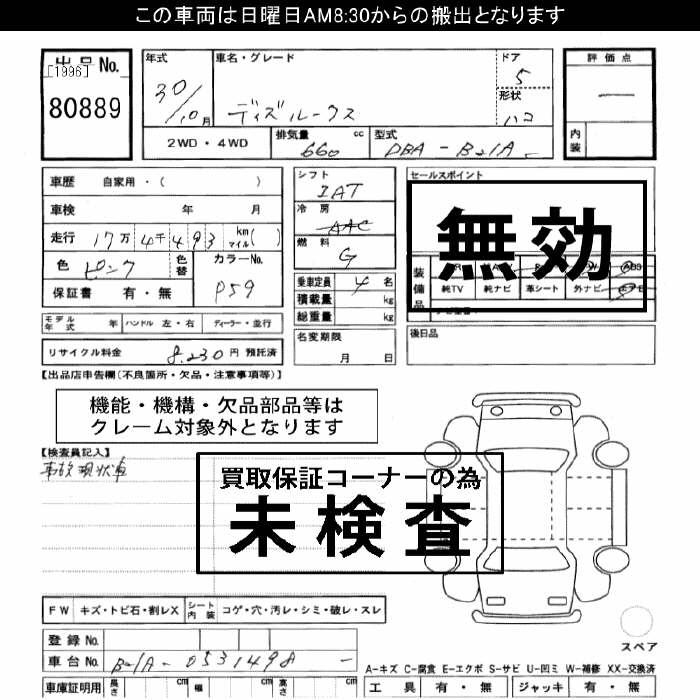 この車両は日曜日AM8:30からの搬出となります
出品No.
[1996]
80889
年式
30/10月
車名・グレード
ディズルークス
ドア
5
形状
ハコ
評価点
―
内装
2WD・4WD
排気量 cc
660
型式
DBA-B21A
車歴 自家用・( )
車検 年 月
走行 17万4千493 km マイル( )
色 ピンク 色替
カラーNo.
P59
保証書 有・無
モデル年式 年 ハンドル 左・右 ディーラー・並行
リサイクル料金 8.230円 預託済
シフト
IAT
冷房
AAC
燃料
G
乗車定員 4名
積載量 kg
総重量 kg
名変期限
月 日
セールスポイント
無効
装備品
純TV 純ナビ 革シート 外ナビ
後日品
【出品店申告欄(不良箇所・欠品・注意事項等)】
機能・機構・欠品部品等は
クレーム対象外となります
【検査員記入】
事故現状車
買取保証コーナーの為
未検査
FW キズ・トビ石・割レX シート内装 コゲ・穴・汚レ・シミ・破レ・スレ
登録No.
車台No. B21A-0531498
車庫証明用 長さ cm 幅 cm 高さ cm
スペア
A-キズ C-腐食 E-エクボ S-サビ U-凹ミ W-補修 XX-交換済
工具 有・無 ジャッキ 有・無